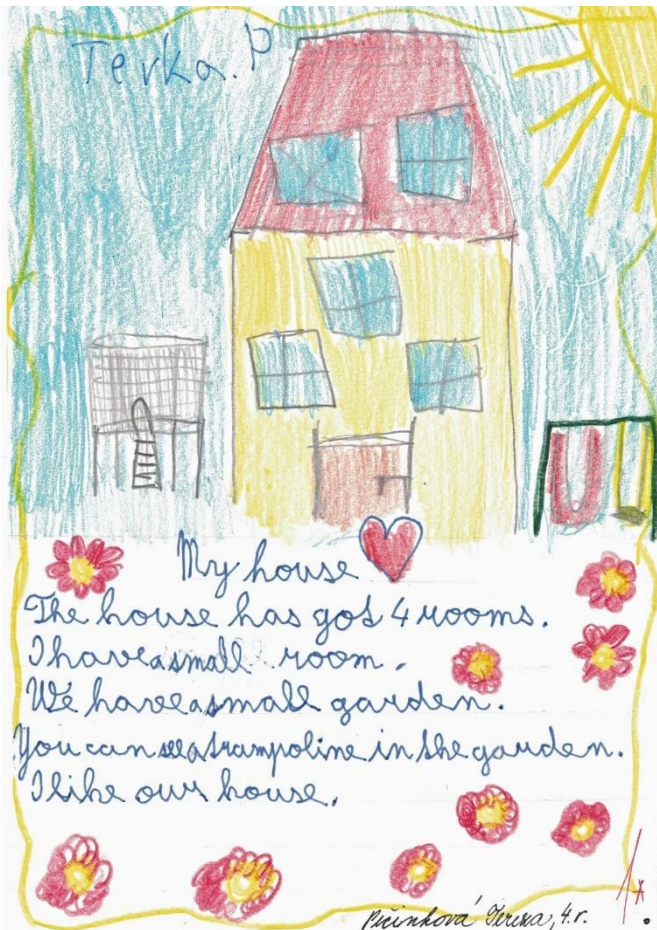 Terka. P
My house
The house has got 4 rooms.
I have a small room.
We have a small garden.
You can see a trampoline in the garden.
I like our house.
Pečinková Tereza, 4.r.
1*